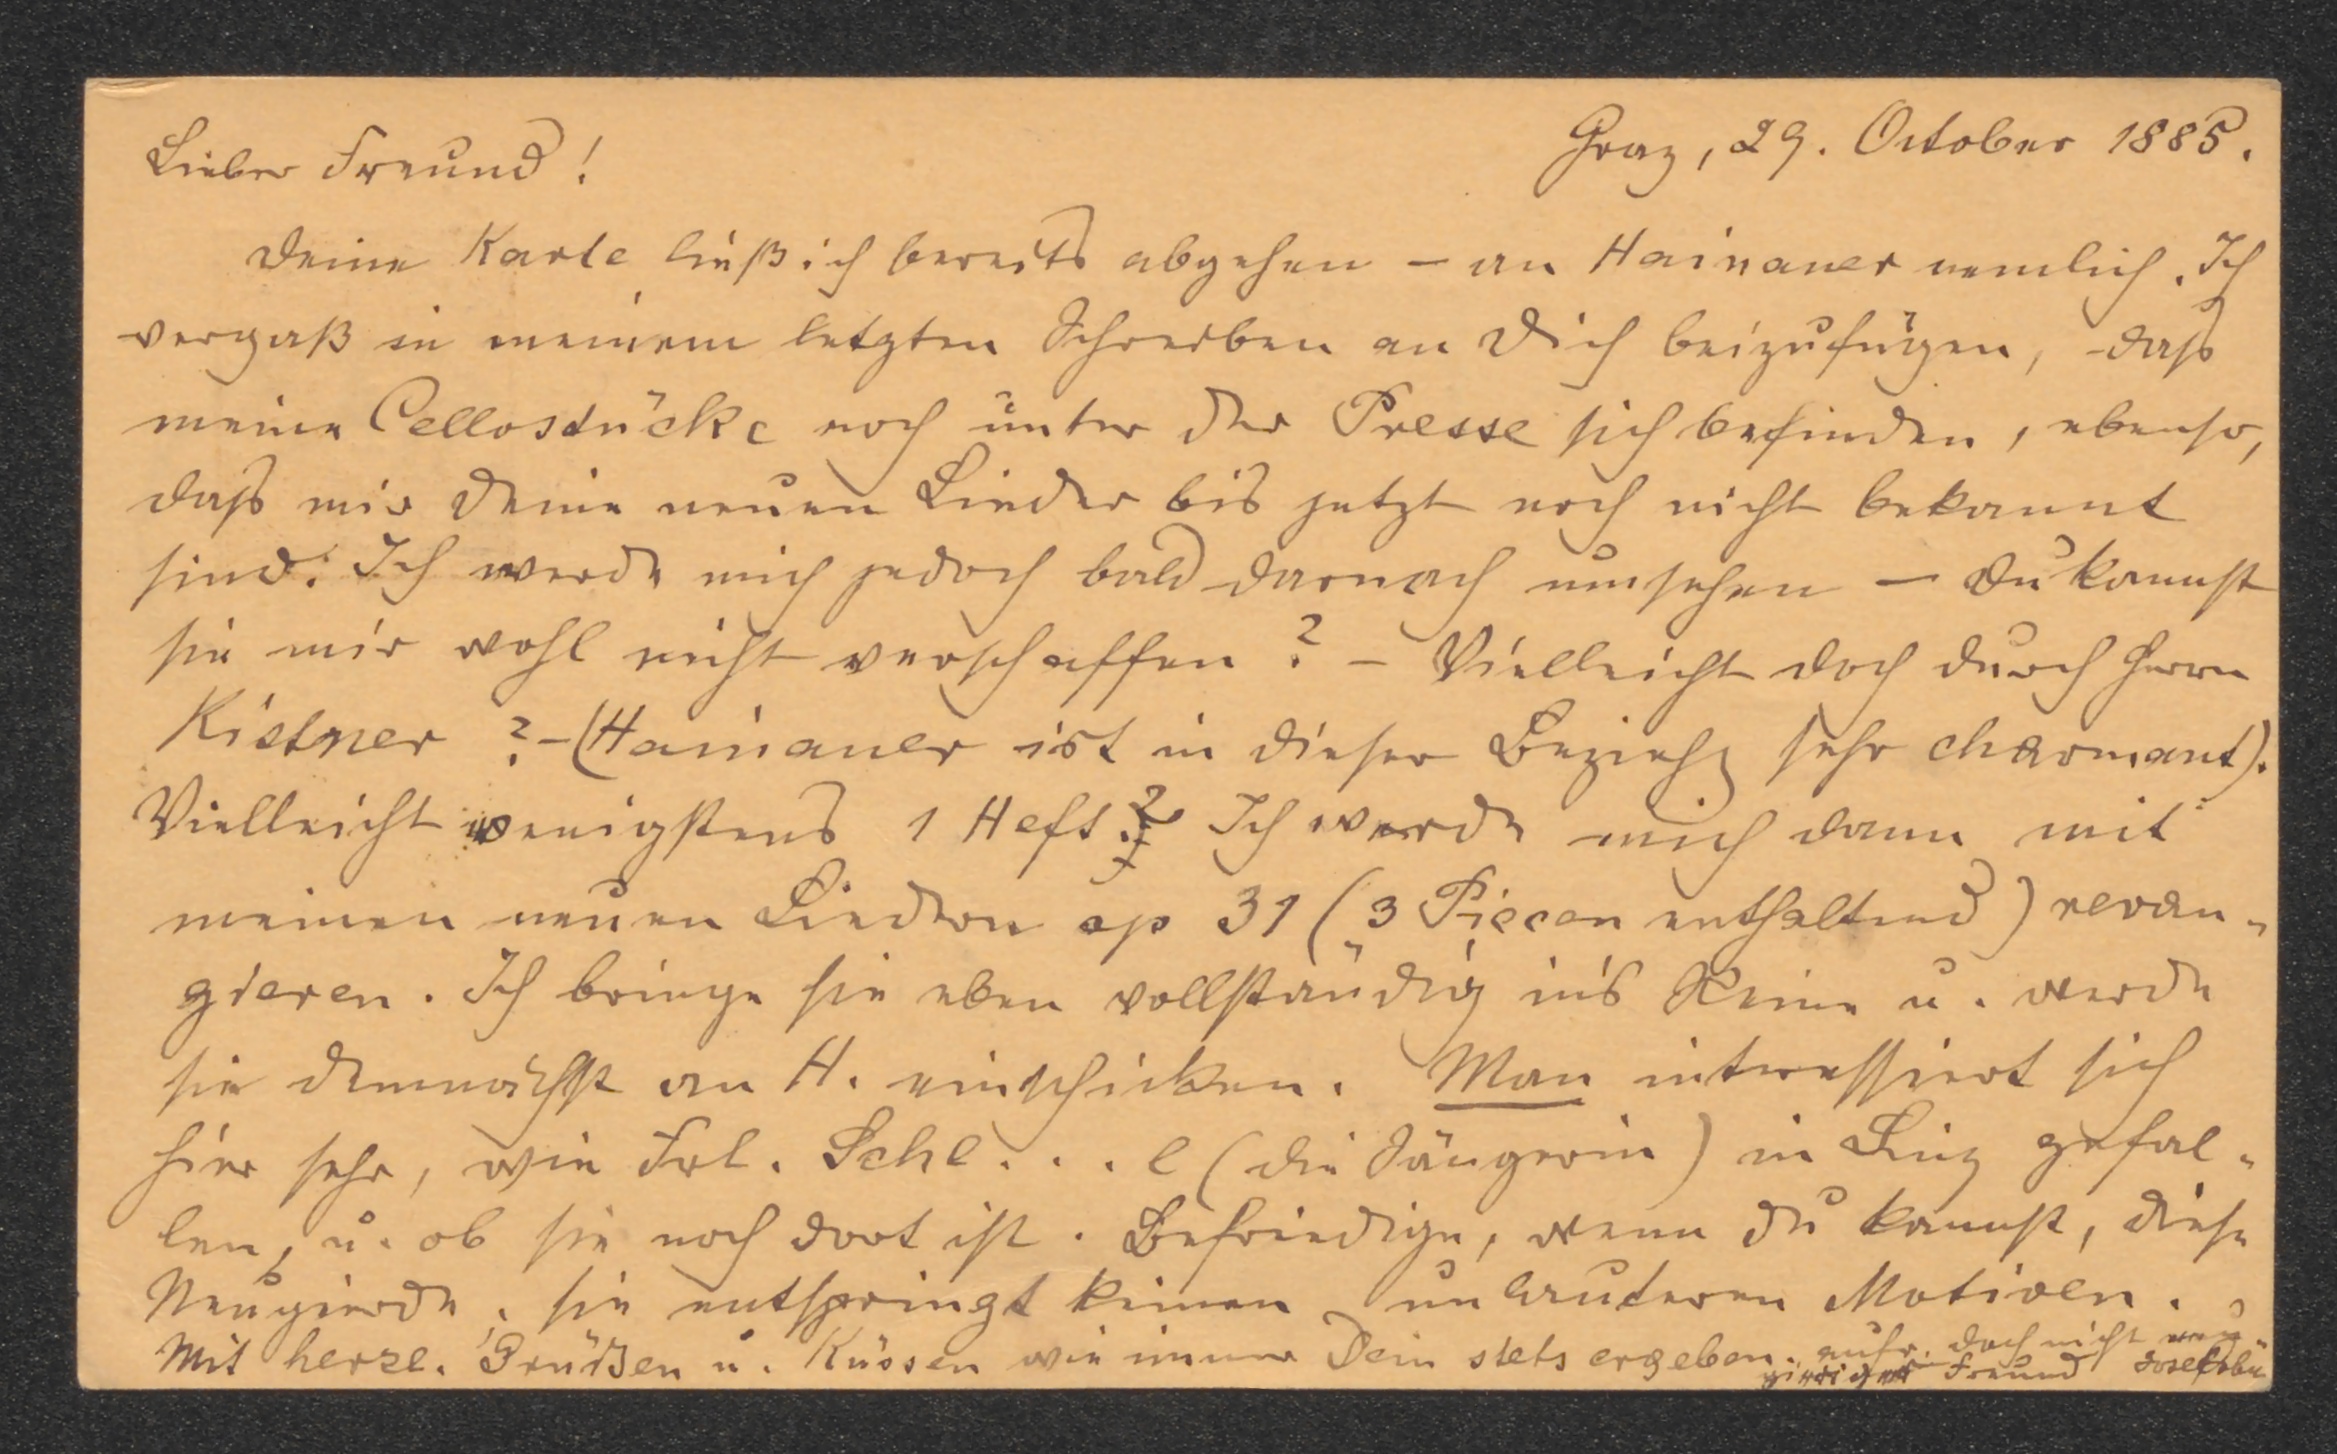 Graz, 29. October 1885.
Lieber Freund!
Deine Karte ließ ich bereits abgehen – an Hainauer nemlich. Ich
vergaß in meinem letzten Schreiben an Dich beizufügen, daß
meine Cellostücke noch unter der Presse sich befinden, ebenso,
daß mir Deine neuen Lieder bis jetzt noch nicht bekannt
sind. Ich werde mich jedoch bald darnach umsehen – Du kannst
sie mir wohl nicht verschaffen? – Vielleicht doch durch Herrn
Kistner? – (Hainauer ist in dieser Beziehg sehr charmant).
Vielleicht wenigstens 1 Heft? Ich werde mich dann mit
meinen neuen Liedern op 31 (3 Piecen enthaltend) revan-
gieren. Ich bringe sie eben vollständig in's Reine u. werde
sie demnächst an H. einschicken. Man interessiert sich
hier sehr, wie Frl. Schl...l (die Sängerin) in Linz gefal-
len, u. ob sie noch dort ist. Befriedige, wenn Du kannst, diese
Neugierde; sie entspringt keinen unlauteren Motiven.
Mit herzl. Grüßen u. Küssen wie immer Dein stets ergeben. aufr. doch nicht neu-
gieriger Freund